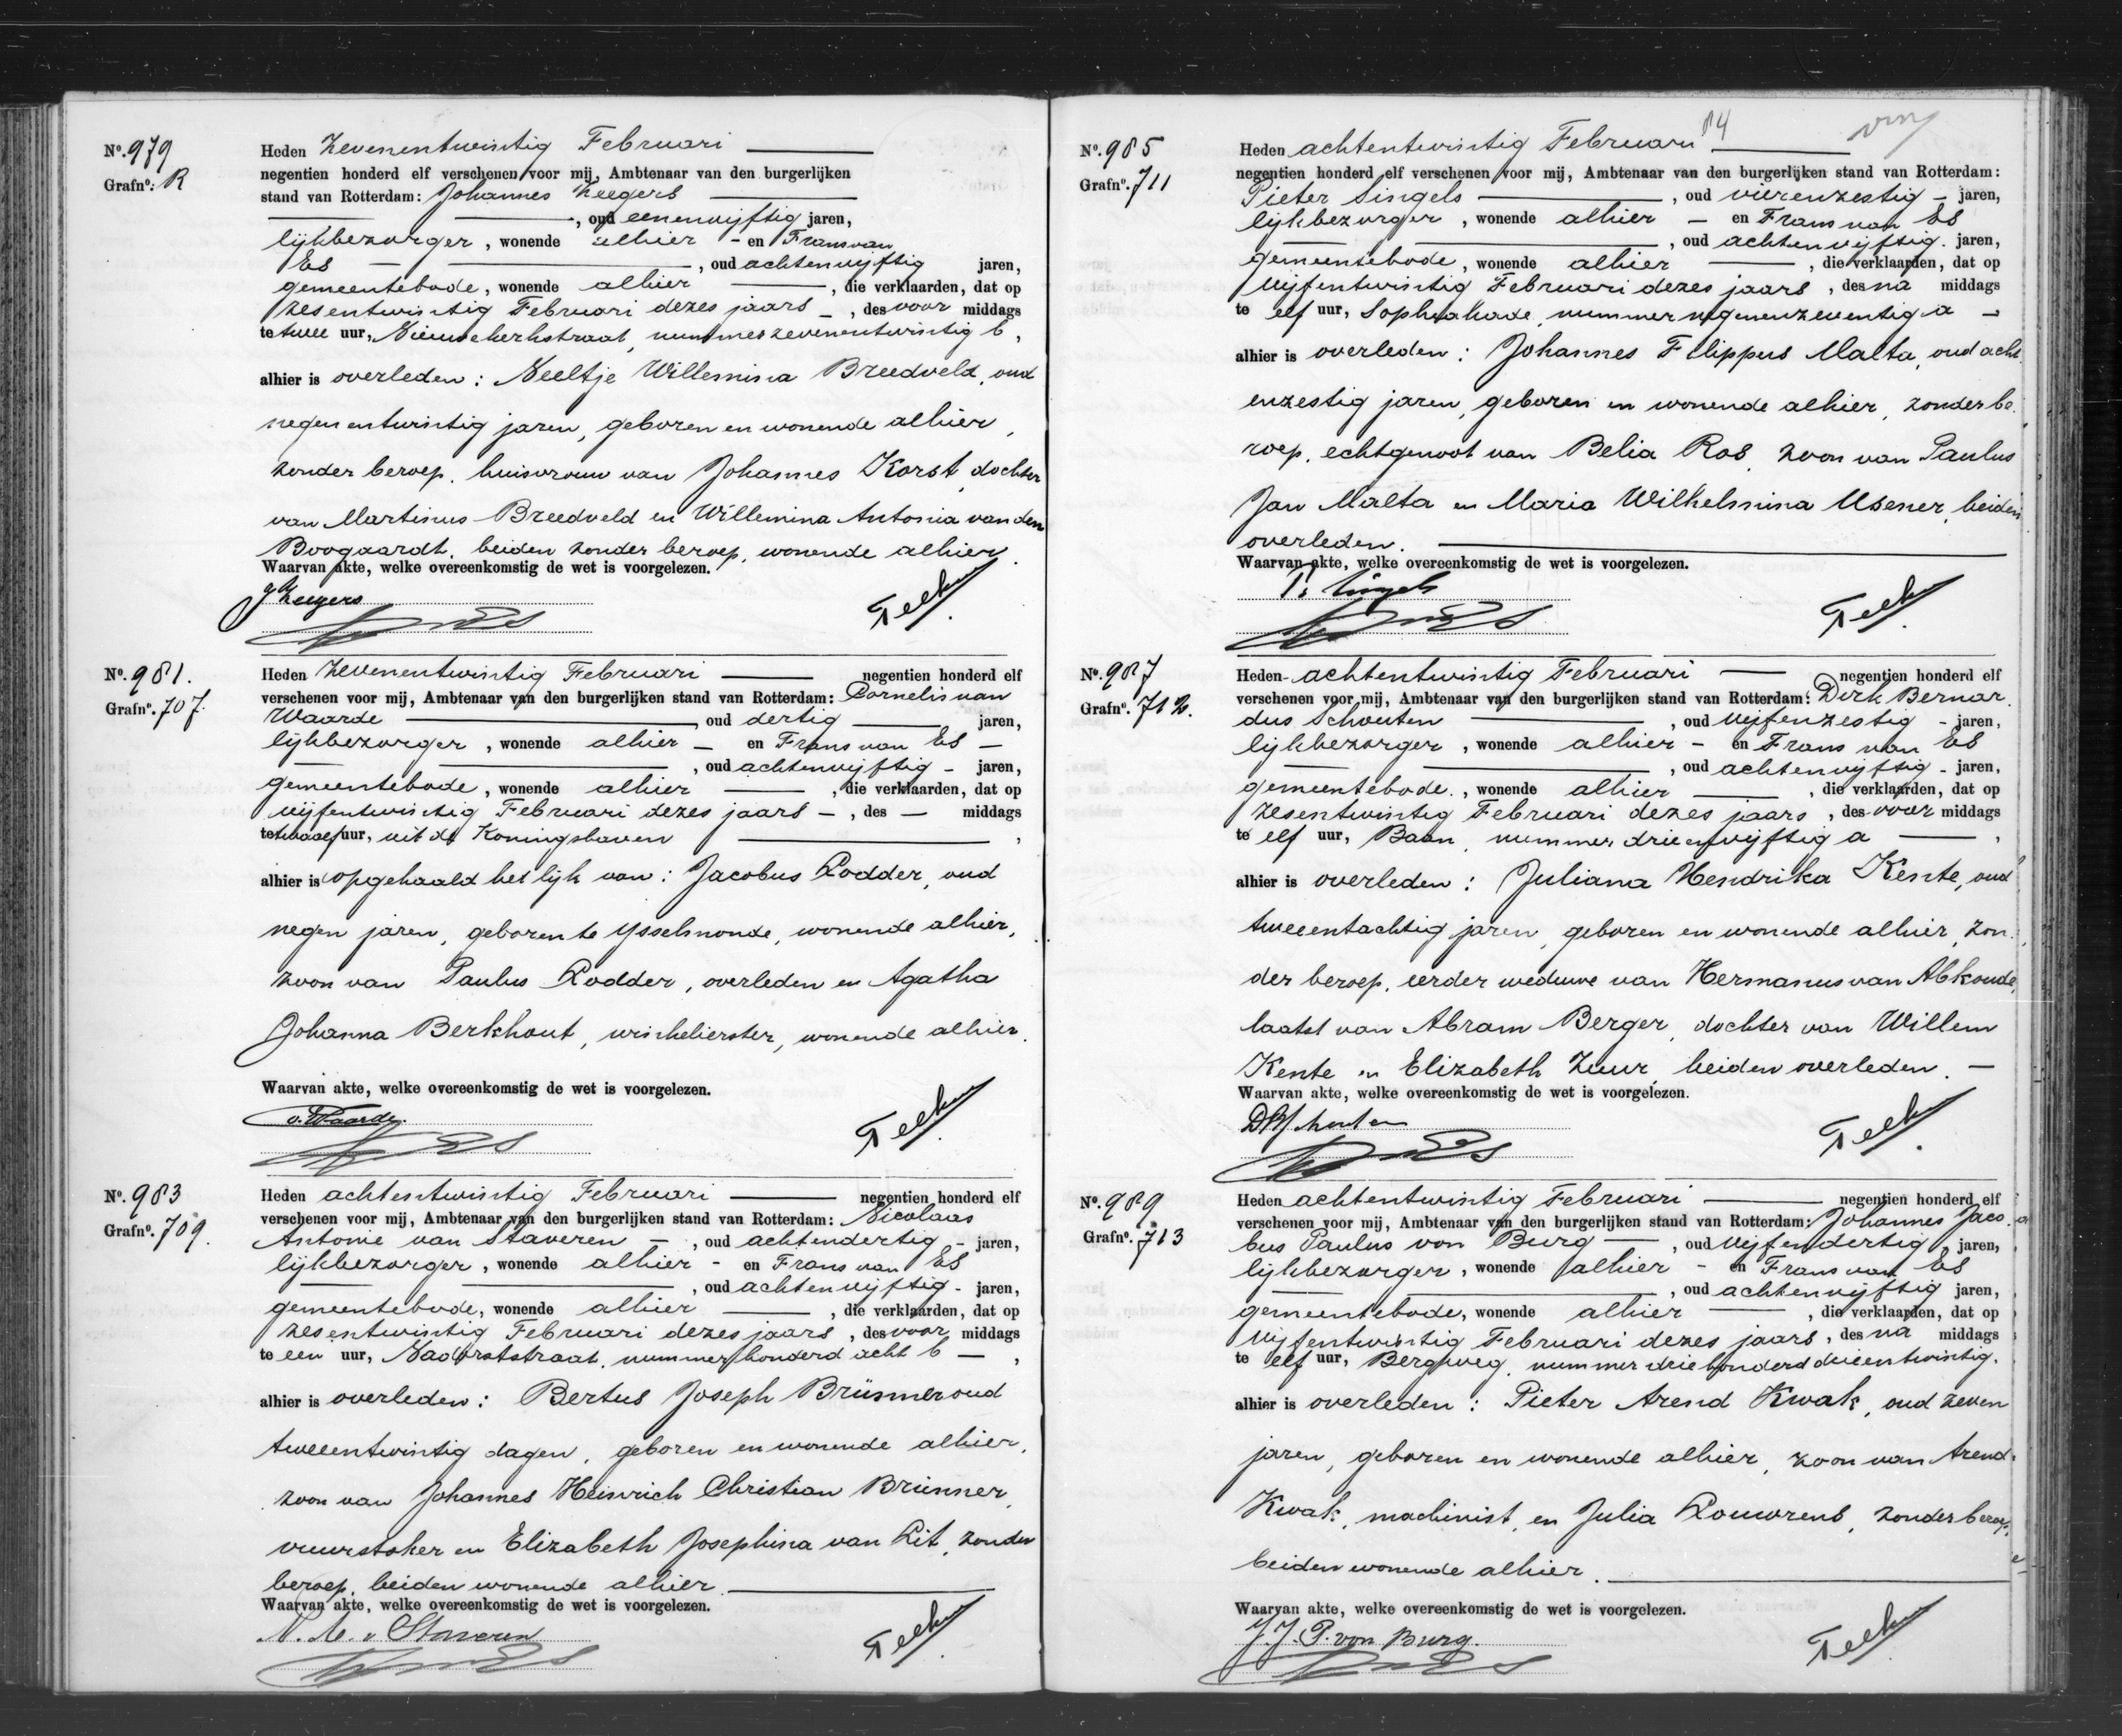 No. 979
Grafno: R
Heden zevenentwintig Februari
negentien honderd elf verschenen voor mij, Ambtenaar van den burgerlijken
stand van Rotterdam: Johannes Zeegers
, oud eenenvijftig jaren,
lijkbezorger, wonende alhier - en Frans van
Es , oud achtenvijftig jaren,
gemeentebode, wonende alhier , die verklaarden, dat op
zesentwintig Februari dezes jaars , des voor middags
te twee uur, Nieuwekerkstraat, nummer zevenentwintig b,
alhier is overleden: Neeltje Willemina Breedveld, oud
negenentwintig jaren, geboren en wonende alhier,
zonder beroep, huisvrouw van Johannes Korst, dochter
van Martinus Breedveld en Willemina Antonia van den
Boogaardt, beiden zonder beroep, wonende alhier.
Waarvan akte, welke overeenkomstig de wet is voorgelezen.
JH Zeegers
No. 981.
Grafno. 707.
Heden zevenentwintig Februari negentien honderd elf
verschenen voor mij, Ambtenaar van den burgerlijken stand van Rotterdam: Cornelis van
Waarde , oud dertig jaren,
lijkbezorger, wonende alhier - en Frans van Es -
, oud achtenvijftig - jaren,
gemeentebode, wonende alhier , die verklaarden, dat op
vijfentwintig Februari dezes jaars - , des - middags
te twaalf uur, uit de Koningshaven ,
alhier is opgehaald het lijk van: Jacobus Lodder, oud
negen jaren, geboren te Ysselmonde, wonende alhier,
zoon van Paulus Lodder, overleden en Agatha
Johanna Berkhout, winkelierster, wonende alhier.
Waarvan akte, welke overeenkomstig de wet is voorgelezen.
v. Waarde.
No. 983
Grafno. 709.
Heden achtentwintig Februari negentien honderd elf
verschenen voor mij, Ambtenaar van den burgerlijken stand van Rotterdam: Nicolaas
Antonie van Staveren - , oud achtendertig - jaren,
lijkbezorger, wonende alhier - en Frans van Es
, oud achtenvijftig - jaren,
gemeentebode, wonende alhier , die verklaarden, dat op
zesentwintig Februari dezes jaars , des voor middags
te een uur, Nadorststraat, nummer honderd acht b - ,
alhier is overleden: Bertus Joseph Brünner oud
tweeentwintig dagen, geboren en wonende alhier,
zoon van Johannes Heinrich Christian Brünner,
vuurstoker en Elizabeth Josephina van Lit, zonder
beroep, beiden wonende alhier.
Waarvan akte, welke overeenkomstig de wet is voorgelezen.
N. A. v Staveren
No. 985
Grafno. 711
Heden achtentwintig Februari
negentien honderd elf verschenen voor mij, Ambtenaar van den burgerlijken stand van Rotterdam:
Pieter Singels , oud vierenzestig - jaren,
lijkbezorger, wonende alhier - en Frans van Es
, oud achtenvijftig. jaren,
gemeentebode, wonende alhier , die verklaarden, dat op
vijfentwintig Februari dezes jaars , des na middags
te elf uur, Sophiakade, nummer negenenzeventig a -
alhier is overleden: Johannes Filippus Malta, oud acht
enzestig jaren, geboren en wonende alhier, zonder be
roep, echtgenoot van Belia Ros, zoon van Paulus
Jan Malta en Maria Wilhelmina Usener, beiden
overleden.
Waarvan akte, welke overeenkomstig de wet is voorgelezen.
P. Singels
No. 987
Grafno. 712.
Heden achtentwintig Februari negentien honderd elf
verschenen voor mij, Ambtenaar van den burgerlijken stand van Rotterdam: Dirk Bernar
dus Schouten , oud vijfenzestig - jaren,
lijkbezorger, wonende alhier - en Frans van Es
, oud achtenvijftig - jaren,
gemeentebode., wonende alhier , die verklaarden, dat op
zesentwintig Februari dezes jaars , des voor middags
te elf uur, Baan, nummer drieenvijftig a ,
alhier is overleden: Juliana Hendrika Kente, oud
tweeentachtig jaren, geboren en wonende alhier, zon
der beroep, eerder weduwe van Hermanus van Abkoude,
laatst van Abram Berger, dochter van Willem
Kente en Elizabeth Zuur, beiden overleden. -
Waarvan akte, welke overeenkomstig de wet is voorgelezen.
DB Schouten
No. 989
Grafno. 713
Heden achtentwintig Februari negentien honderd elf
verschenen voor mij, Ambtenaar van den burgerlijken stand van Rotterdam: Johannes Jaco
bus Paulus von Burg , oud vijfendertig, jaren,
lijkbezorger, wonende alhier - en Frans van Es
, oud achtenvijftig jaren,
gemeentebode, wonende alhier , die verklaarden, dat op
vijfentwintig Februari dezes jaars, des na middags
te elf uur, Bergweg, nummer driehonderd drieentwintig,
alhier is overleden: Pieter Arend Kwak, oud zeven
jaren, geboren en wonende alhier, zoon van Arend
Kwak, machinist, en Julia Louwrens, zonder beroep,
beiden wonende alhier.
Waarvan akte, welke overeenkomstig de wet is voorgelezen.
J. J. P. von Burg.